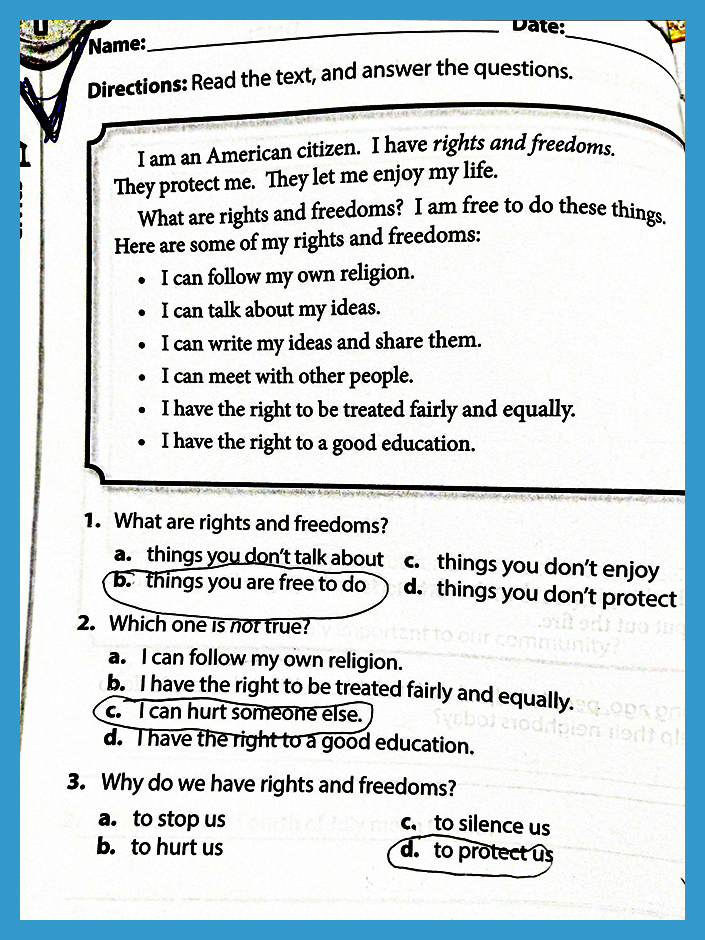 Name: Date:
Directions: Read the text, and answer the questions.
I am an American citizen. I have rights and freedoms.
They protect me. They let me enjoy my life.
What are rights and freedoms? I am free to do these things.
Here are some of my rights and freedoms:
• I can follow my own religion.
• I can talk about my ideas.
• I can write my ideas and share them.
• I can meet with other people.
• I have the right to be treated fairly and equally.
• I have the right to a good education.
1. What are rights and freedoms?
a. things you don't talk about c. things you don't enjoy
b. things you are free to do d. things you don't protect
2. Which one is not true?
a. I can follow my own religion.
b. I have the right to be treated fairly and equally.
c. I can hurt someone else.
d. I have the right to a good education.
3. Why do we have rights and freedoms?
a. to stop us c. to silence us
b. to hurt us d. to protect us